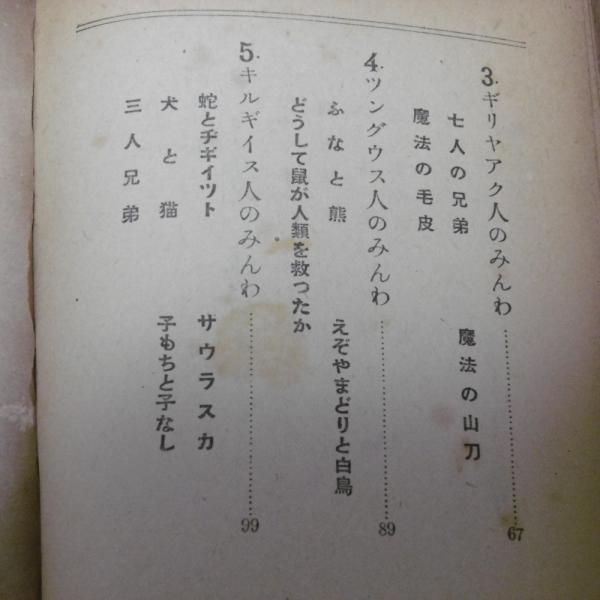 3. ギリヤアク人のみんわ……………67
七人の兄弟　魔法の山刀
魔法の毛皮
4. ツングウス人のみんわ……………89
ふなと熊　えぞやまどりと白鳥
どうして鼠が人類を救つたか
5. キルギイス人のみんわ……………99
蛇とヂギイツト　サウラスカ
犬と猫　子もちと子なし
三人兄弟